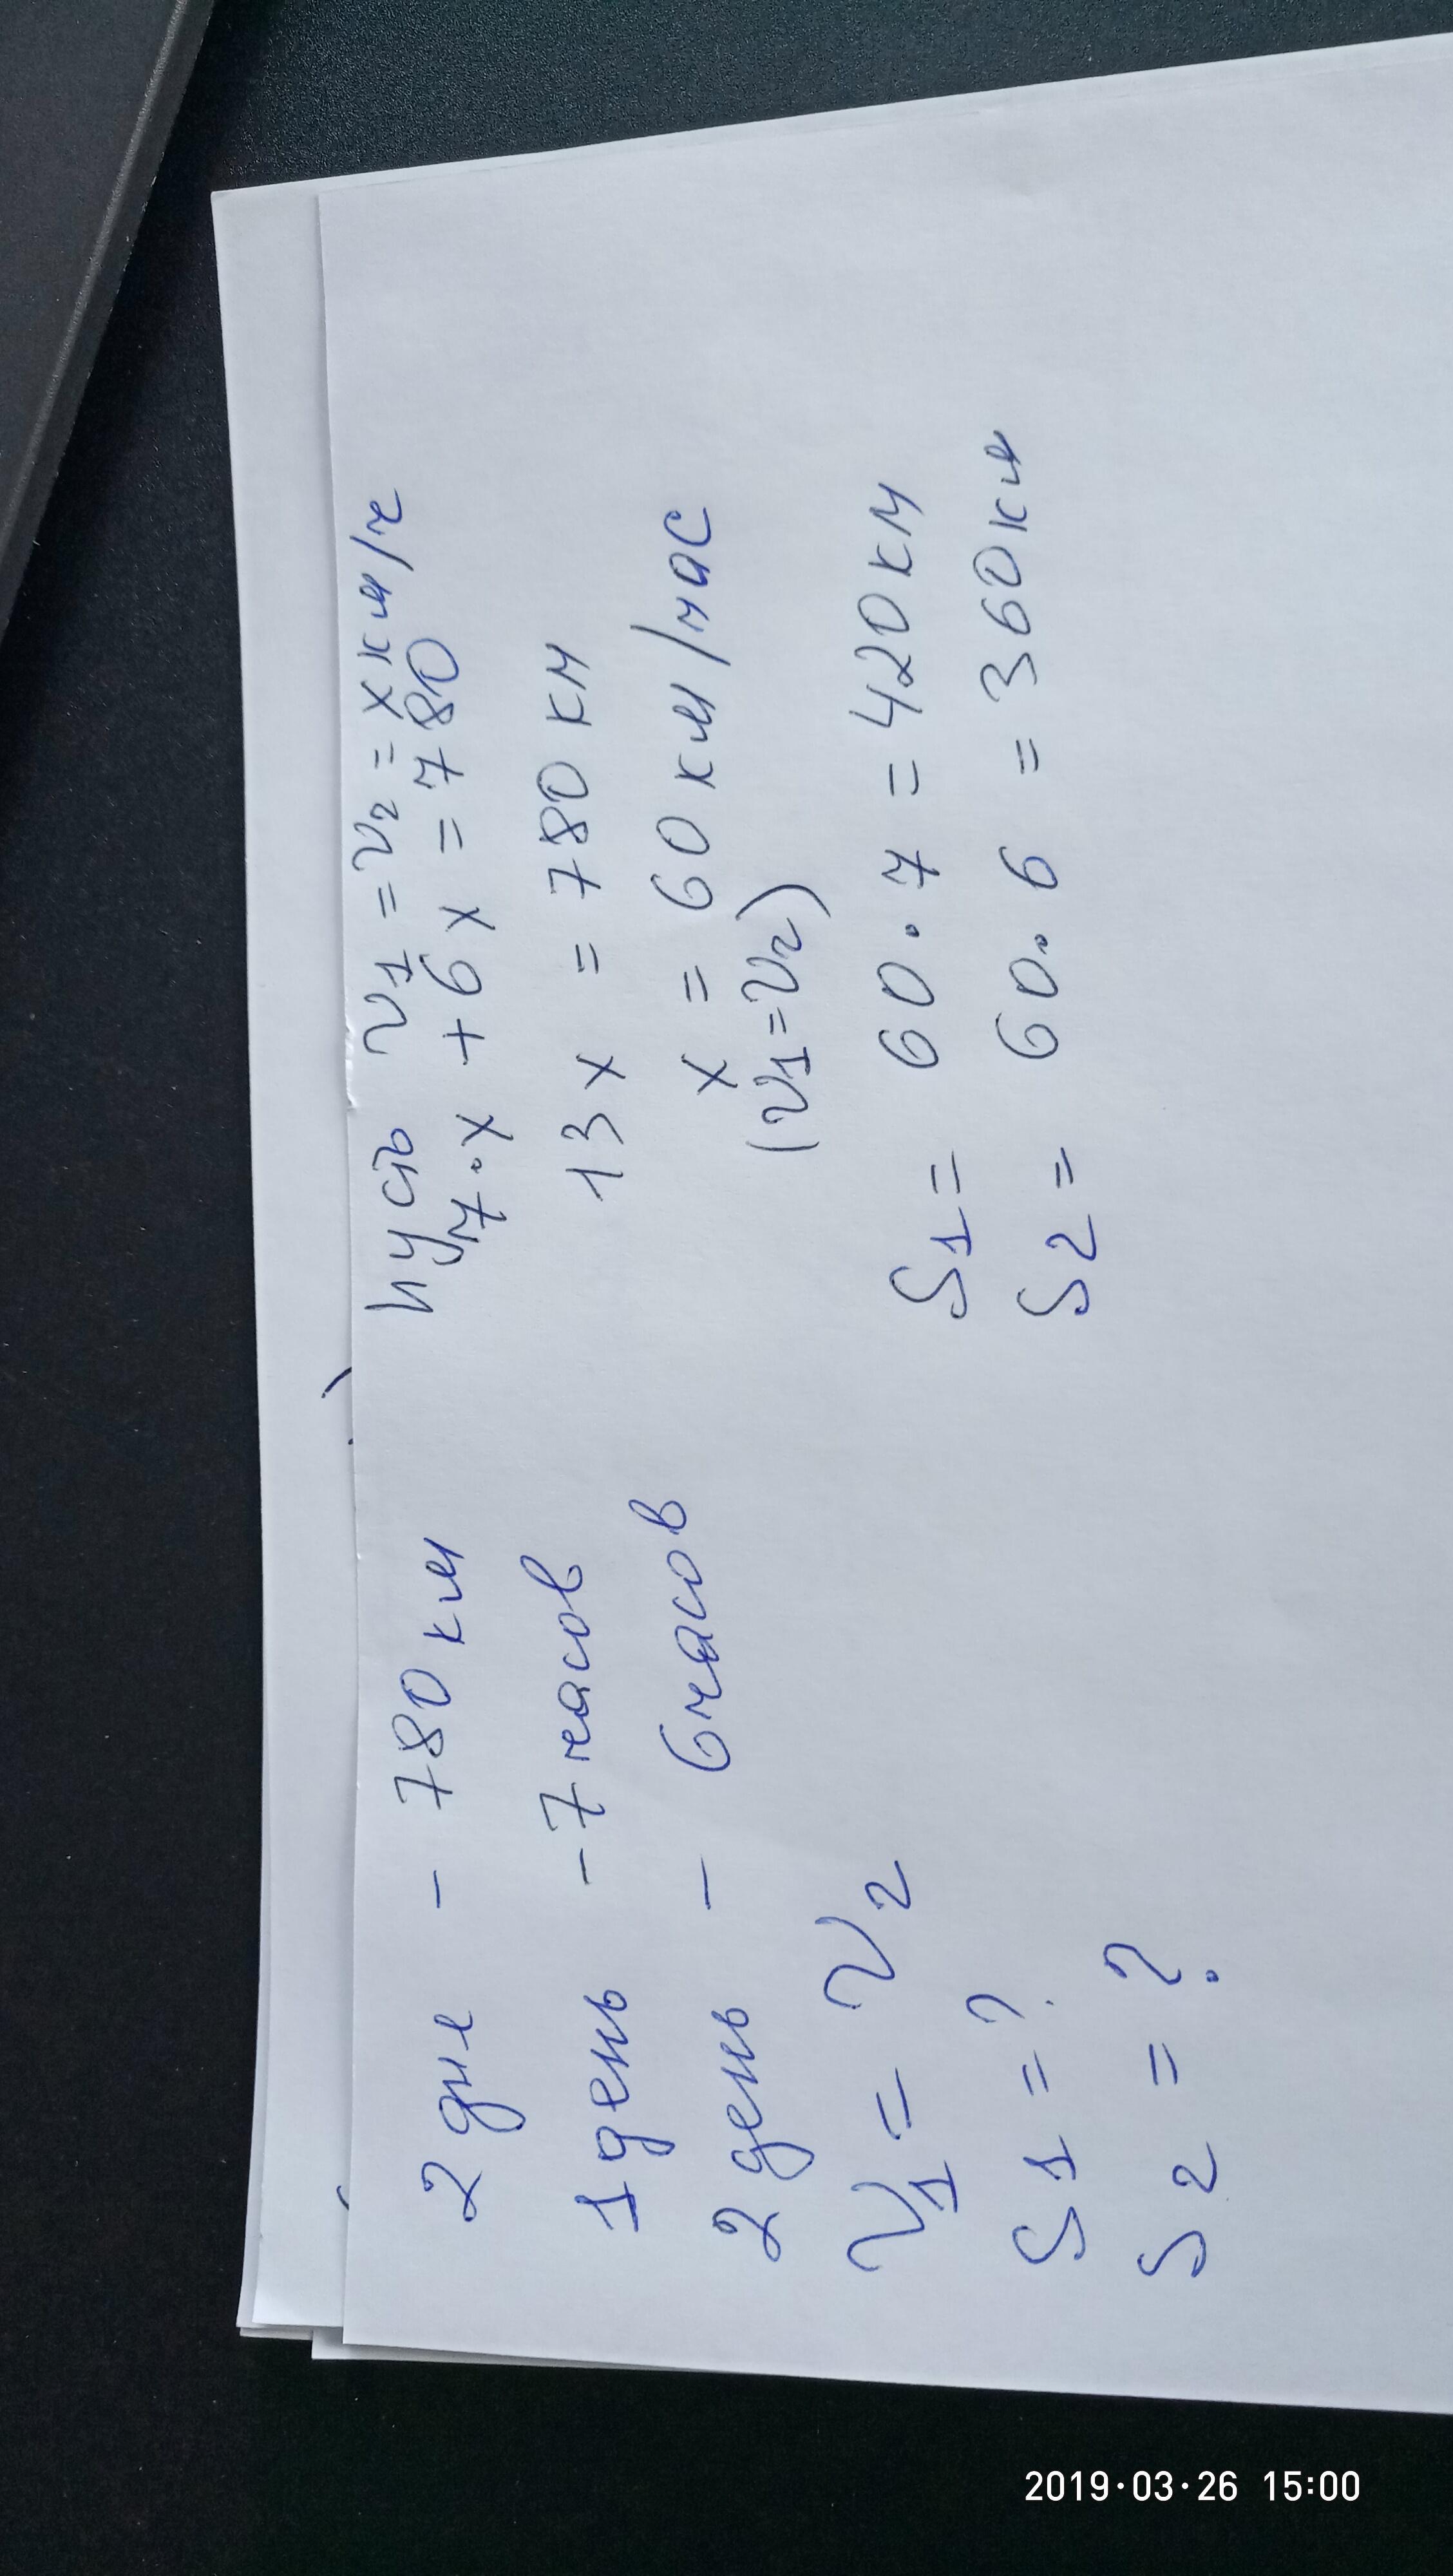 2 дня - 780 км
1 день - 7 часов
2 день - 6 часов
v1 = v2
S1 = ?
S2 = ?
пусть v1 = v2 = x км/ч
7·x + 6x = 780
13x = 780 км
x = 60 км/час
(v1=v2)
S1= 60·7 = 420 км
S2= 60·6 = 360 км
2019·03·26 15:00